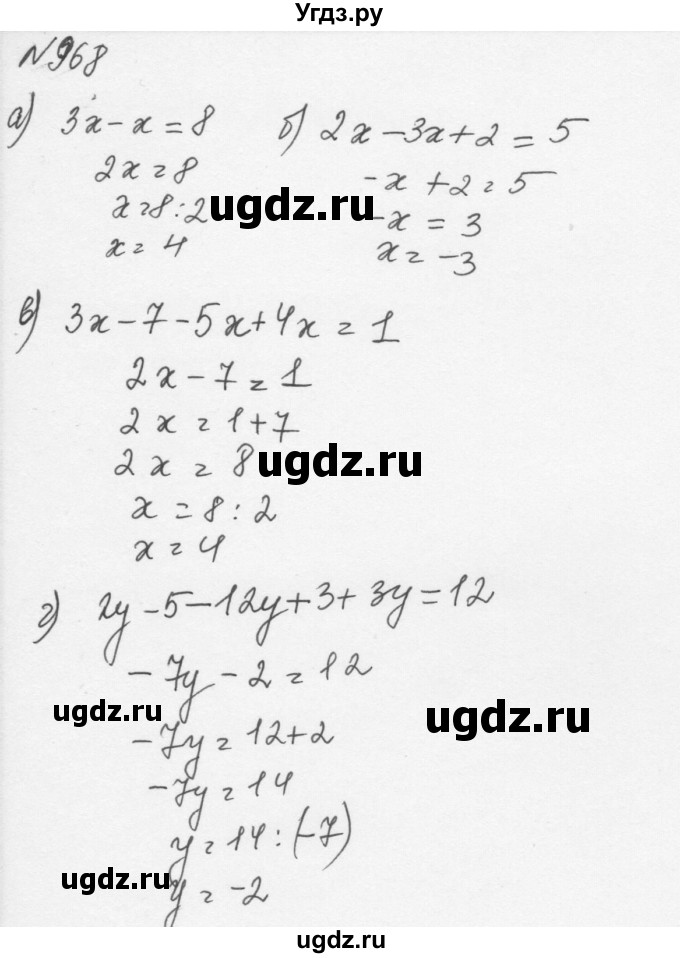 Угдз.ру
№968
а) 3x - x = 8
2x = 8
x = 8 : 2
x = 4
б) 2x - 3x + 2 = 5
-x + 2 = 5
-x = 3
x = -3
ugdz.ru
в) 3x - 7 - 5x + 4x = 1
2x - 7 = 1
2x = 1 + 7
2x = 8
ugdz.ru
x = 8 : 2
x = 4
г) 2y - 5 - 12y + 3 + 3y = 12
-7y - 2 = 12
ugdz.ru
ugdz.ru
-7y = 12 + 2
-7y = 14
y = 14 : (-7)
ugdz.ru
y = -2
ugdz.ru